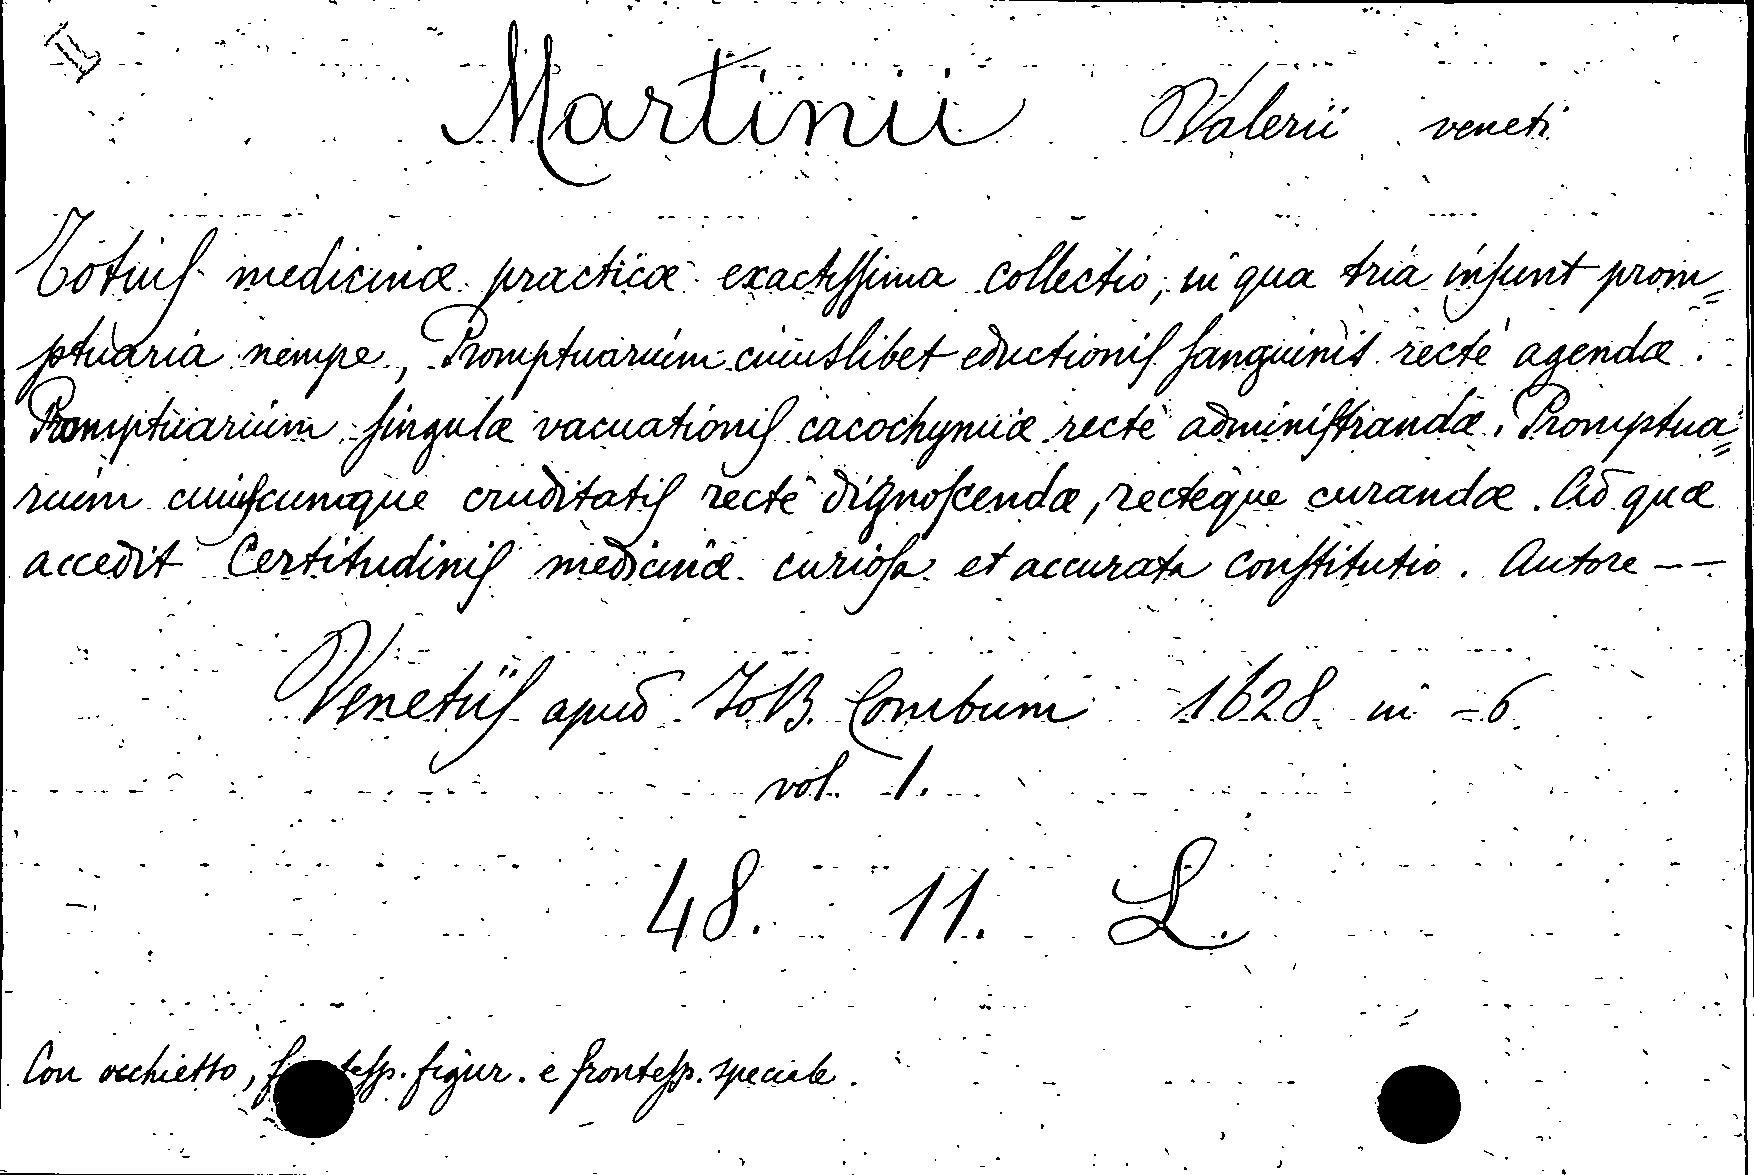 II
Martinii Valerii veneti
Totius medicinæ practicæ exactissima collectio, in qua tria insunt prom=
ptuaria nempe, Promptuarium cuiuslibet eductionis sanguinis rectè agendæ.
Promptuarium singulæ vacuationis cacochymiæ rectè administrandæ. Promptua=
rium cuiuscumque cruditatis rectè dignoscendæ, rectèque curandæ. Ad quæ
accedit Certitudinis medicinæ curiosa et accurata constitutio. Autore --
Venetiis apud IoB. Combum 1628 in -6
vol. 1.
48. 11. L.
Con occhietto, figur. e frontesp. speciale.